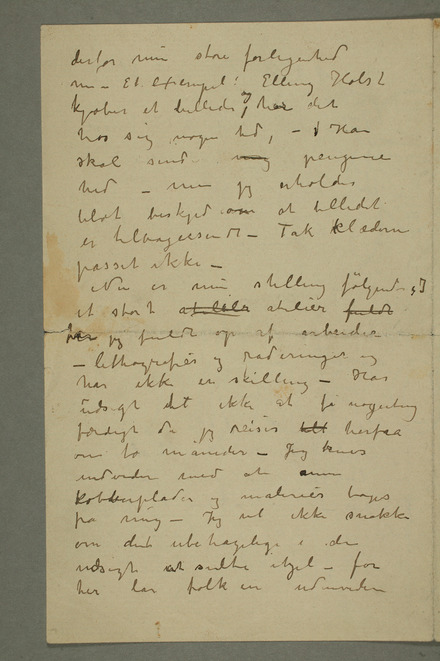 derfor min store forlegenhed
nu – Et Exempel! Elling Holst
kjøber et billede, og har det
hos sig nogen tid, – Han
skal sende mig pengene
ned – men jeg erholder
blot beskjed om at billedet
er tilbagesendt – Tak klæderne
passet ikke –
Nu er min stilling følgende,
et stort atelier atelier fuldt
har jeg fuldt op af arbeider
– lithografier og raderinger og
har ikke en skilling – Har
udsigt det ikke at få nogenting
færdigt da jeg reiser herfra
om to måneder – Jeg trues
endvidere med at
kobberplader og malerier tages
fra mig – Jeg vil ikke snakke
om det ubehagelige i den
udsigt at sulte ihjel – for
her lar folk en udenvidere